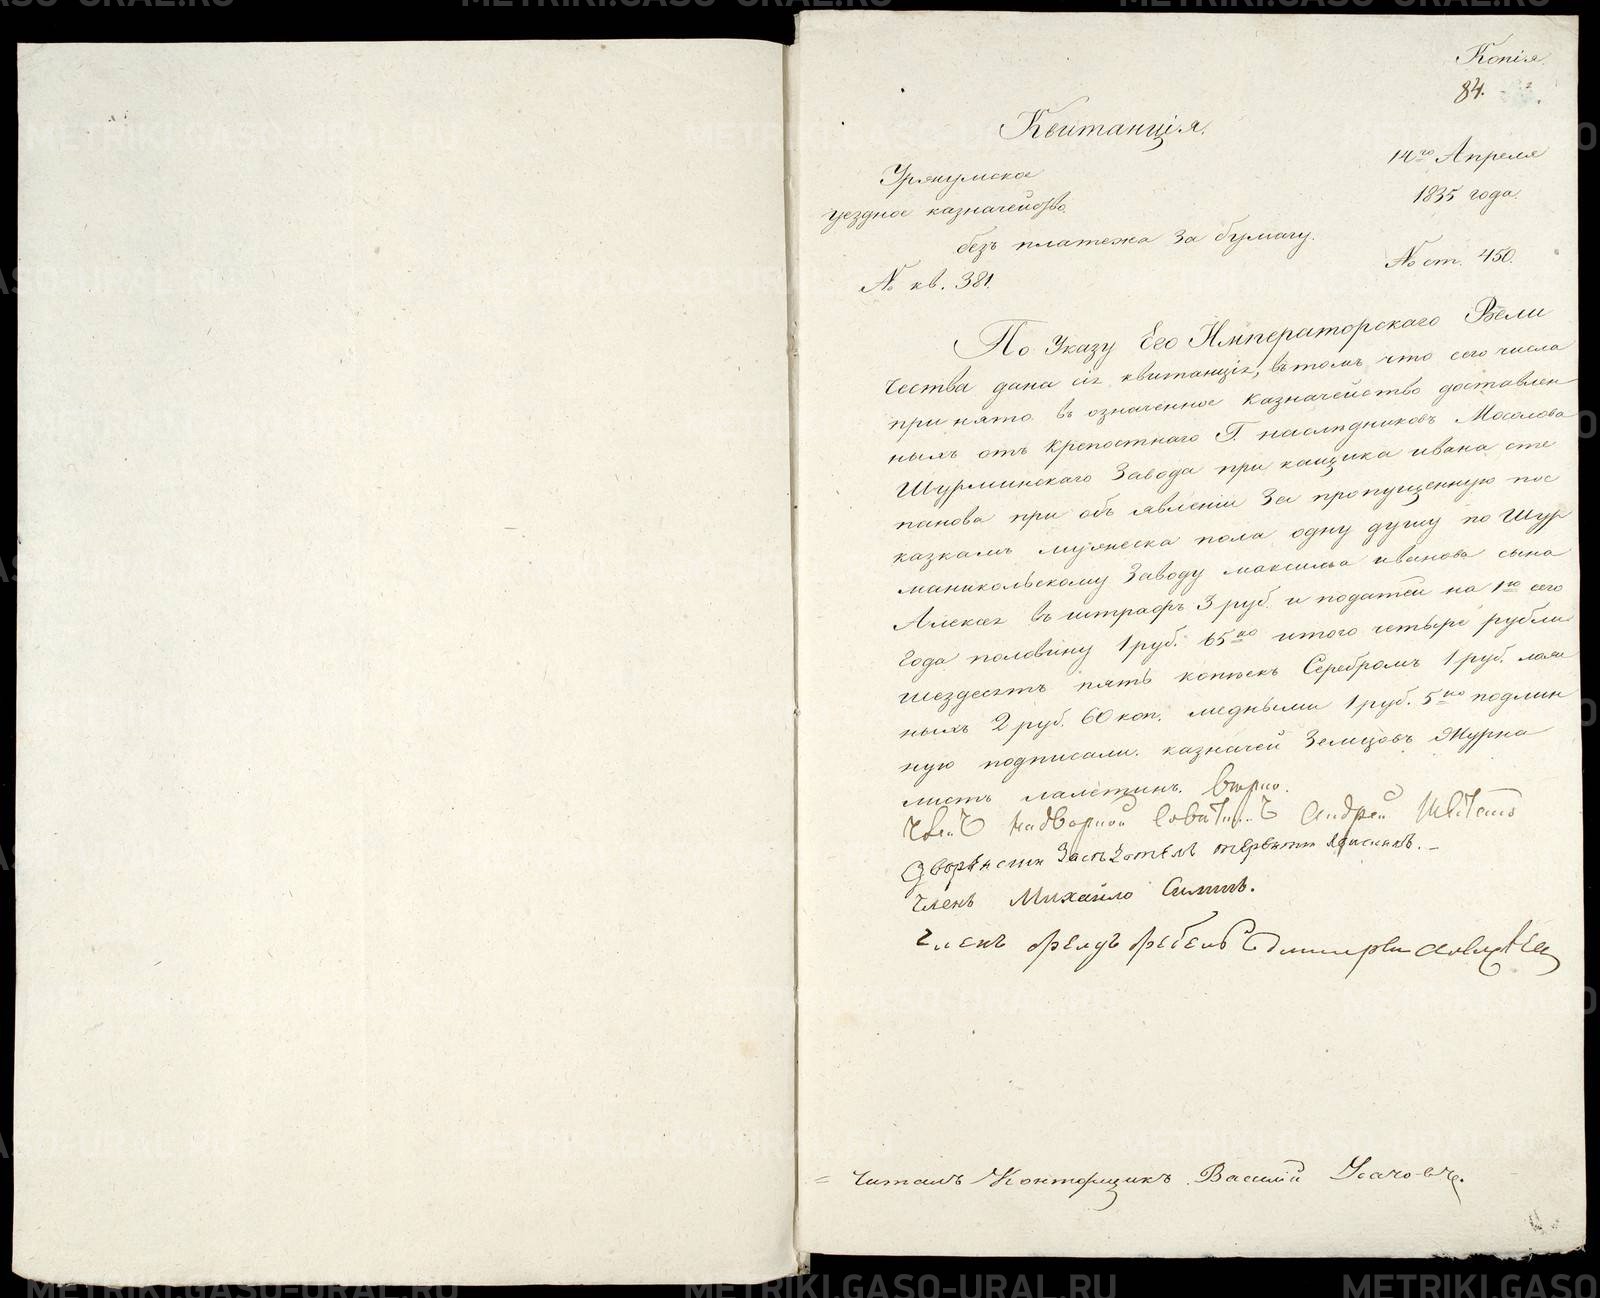 Копія.
84.
Квитанція.
14го Апреля
Уржумское
1835 года.
уездное казначейство.
безъ платежа за бумагу.
№ ст. 450.
№ кв. 381.
По Указу Его Императорскаго Вели
чества дана сія квитанція, въ томъ что сего числа
принято въ означенное казначейство доставлен
ныхъ отъ крепостнаго Г. наследниковъ Мосолова
Шурминскаго Завода прикащика ивана сте
панова при объявленіи за пропущенную по с
казкамъ мужеска пола одну душу по Шур
маникольскому Заводу максима иванова сына
Алексея въ штрафъ 3 руб. и податей на 1ю сего
года половину 1 руб. 65ко итого четыре рубли
шездесятъ пять копѣекъ Серебромъ 1 руб.
ныхъ 2 руб. 60 коп. медными 1 руб. 5ко подлин
ную подписали. казначей Земцовъ Журна
листъ лалетинъ. Вѣрно.
Членъ надворной Советникъ Андрей
Дворянскии Заседатель
Членъ Михайло
Членъ
Читалъ Конторщикъ Василій Усачовъ.
METRIKI.GASO-URAL.RU